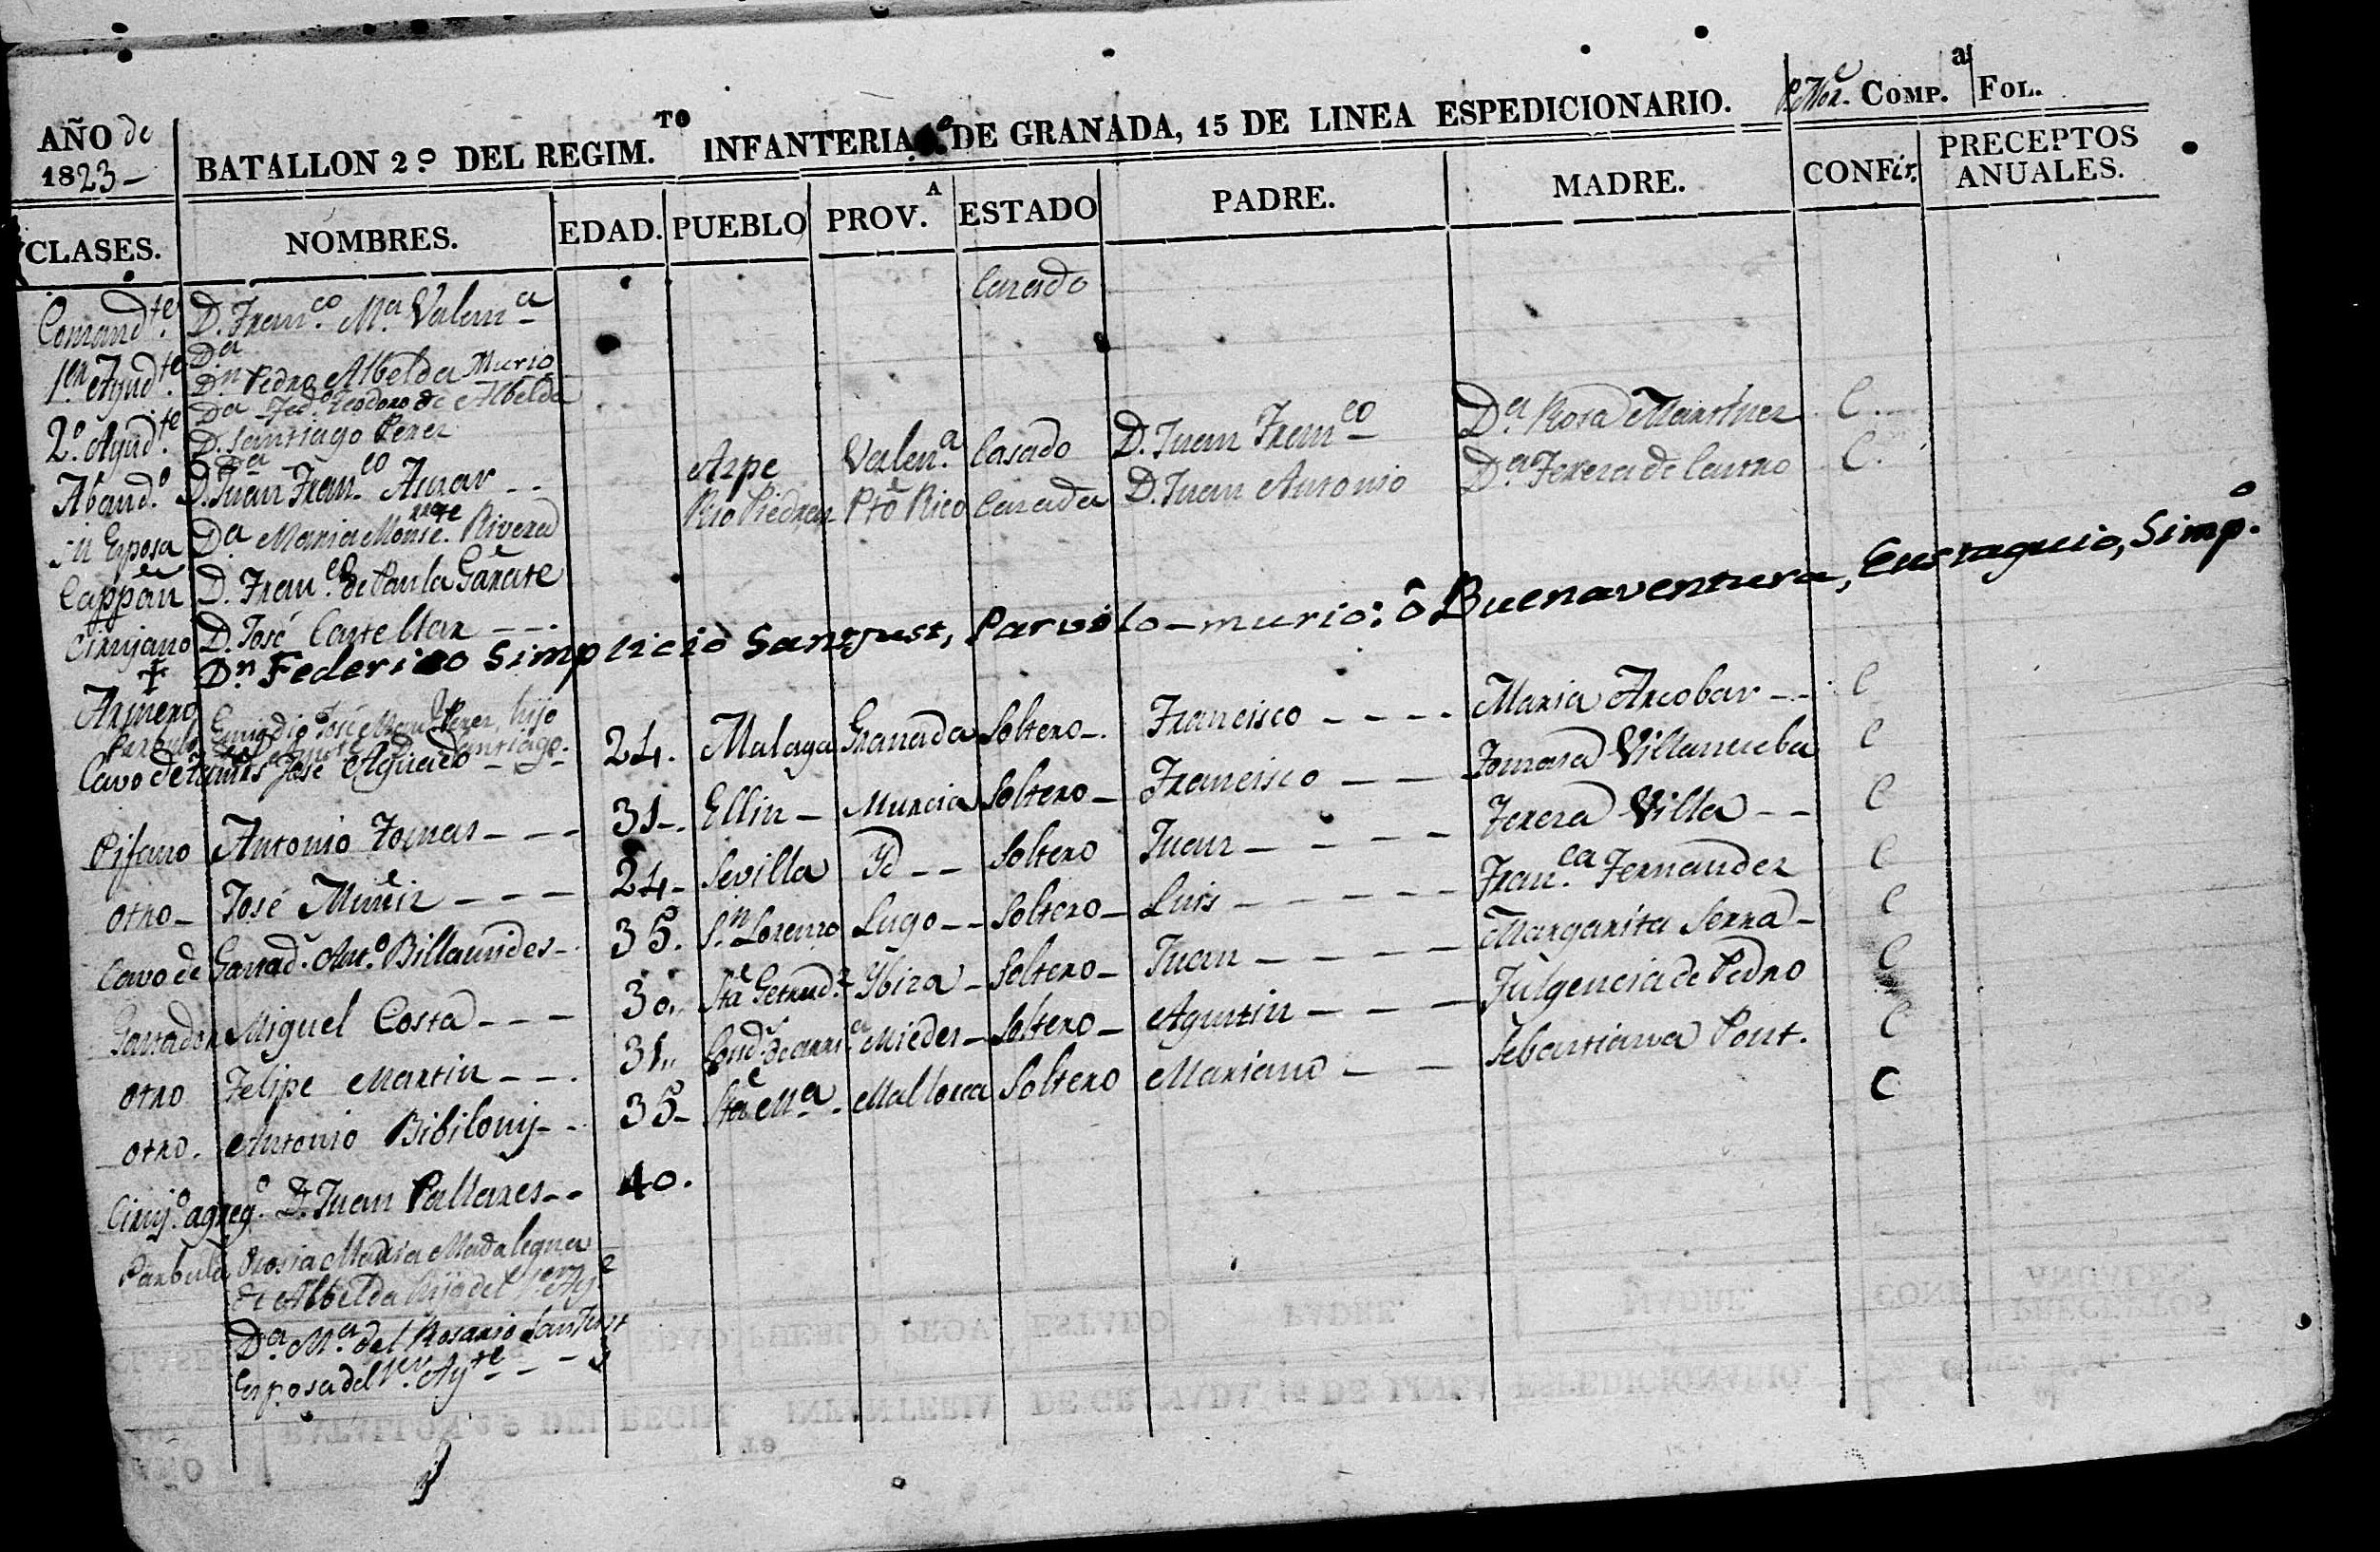 AÑO de 1823 –
BATALLON 2º DEL REGIM.TO INFANTERIA DE GRANADA, 15 DE LINEA ESPEDICIONARIO.
COMP.a FOL.
CLASES. NOMBRES. EDAD. PUEBLO PROV.A ESTADO PADRE. MADRE. CONFir. PRECEPTOS ANUALES.
Comandte. D. Franco. Ma. Valena Casado
Da
1er. Ayudte. Dn. Pedro Albelda Murio
Da Teodoro de Albelda
2º. Ayudte. D. Santiago Perez
Da
Aband.º D. Juan Franco. Aznar – – Aspe Valen.a Casado D. Juan Franco Da. Rosa Martinez C.
Su Esposa Da. Maria Monse. Rivera Rio Piedras Pto Rico Casada D. Juan Antonio Da. Teresa de Castro C.
Cappan D. Franco. de Paula Garate
Cirujano D. José Castellar – – –
† Dn. Federico Simplicio Santjust, Parvulo – murio: ô Buenaventura, Eustaquio, Simpº.
Armero
Parbulo Emigdio José Manl Perez, hijo
Santiago.
Cavo de José Aguado – – 24. Malaga Granada Soltero –. Francisco – – – – Maria Arcobar – – C
Pifano Antonio Tomas – – – 31 –. Ellin – Murcia Soltero – Francisco – – Tomasa Villanueba C
Otro – José Muñiz – – – 24 – Sevilla Yd – – Soltero Juan – – – – Teresa Villa – – C
Cavo de Gastad. Anto. Billaunides – 35. Sn. Lorenzo Lugo – – Soltero – Luis – – – – – Fran.ca Fernandez C
Gastador Miguel Costa – – – 30.. Sta Getrud. – Ybiza – Soltero – Juan – – – – Margarita Serra – C
Otro Felipe Martin – – . 31.. Soltero – Agustin – – – Fulgencia de Pedro C
Otro. Antonio Bibilony – – 35 – Sta Ma. Mallorca Soltero Mariano – – Sebastiana Pont. C
Ciruj.º agreg.º D. Juan Pallares – – 40. C
Parbula Orosia Maria Madalegna
de Albelda hija del 1er. Ayte
Da. Ma. del Rosario Santjust
Esposa del 1er. Ayte – –